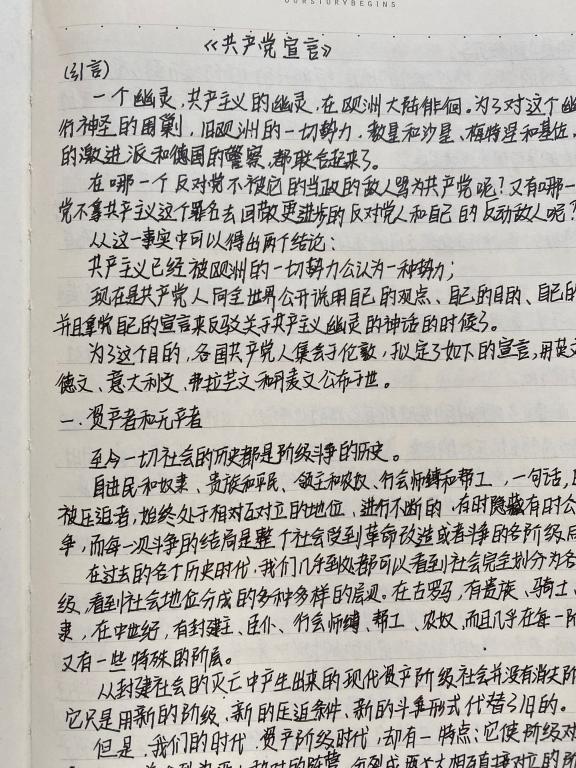 OURSTORYBEGINS
《共产党宣言》
(引言)
一个幽灵,共产主义的幽灵,在欧洲大陆徘徊。为了对这个幽
行神圣的围剿,旧欧洲的一切势力,教皇和沙皇、梅特涅和基佐,
的激进派和德国的警察,都联合起来了。
在哪一个反对党不被它的当政的敌人骂为共产党呢?又有哪一
党不拿共产主义这个罪名去回敬更进步的反对党人和自己的反动敌人呢?
从这一事实中可以得出两个结论:
共产主义已经被欧洲的一切势力公认为一种势力;
现在是共产党人向全世界公开说明自己的观点、自己的目的、自己的
并且拿党自己的宣言来反驳关于共产主义幽灵的神话的时候了。
为了这个目的,各国共产党人集会于伦敦,拟定了如下的宣言,用英文
德文、意大利文、弗拉芒文和丹麦文公布于世。
一.资产者和无产者
至今一切社会的历史都是阶级斗争的历史。
自由民和奴隶、贵族和平民、领主和农奴、行会师缚和帮工,一句话,
被压迫者,始终处于相对互对立的地位,进行不断的、有时隐藏有时公
争,而每一次斗争的结局是整个社会受到革命改造或者斗争的各阶级
在过去的各个历史时代,我们几乎到处都可以看到社会完全划分为各
级,看到社会地位分成的多种多样的层次。在古罗马,有贵族、骑士、
隶,在中世纪,有封建主、臣仆、行会师缚、帮工、农奴,而且几乎在每一
又有一些特殊的阶层。
从封建社会的灭亡中产生出来的现代资产阶级社会并没有消灭阶
它只是用新的阶级、新的压迫条件、新的斗争形式代替了旧的。
但是,我们的时代,资产阶级时代,却有一特点:它使阶级对